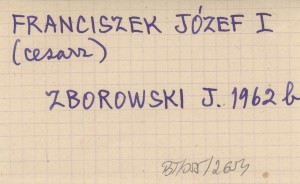 FRANCISZEK JÓZEF I
(cesarz)
ZBOROWSKI J. 1962 b